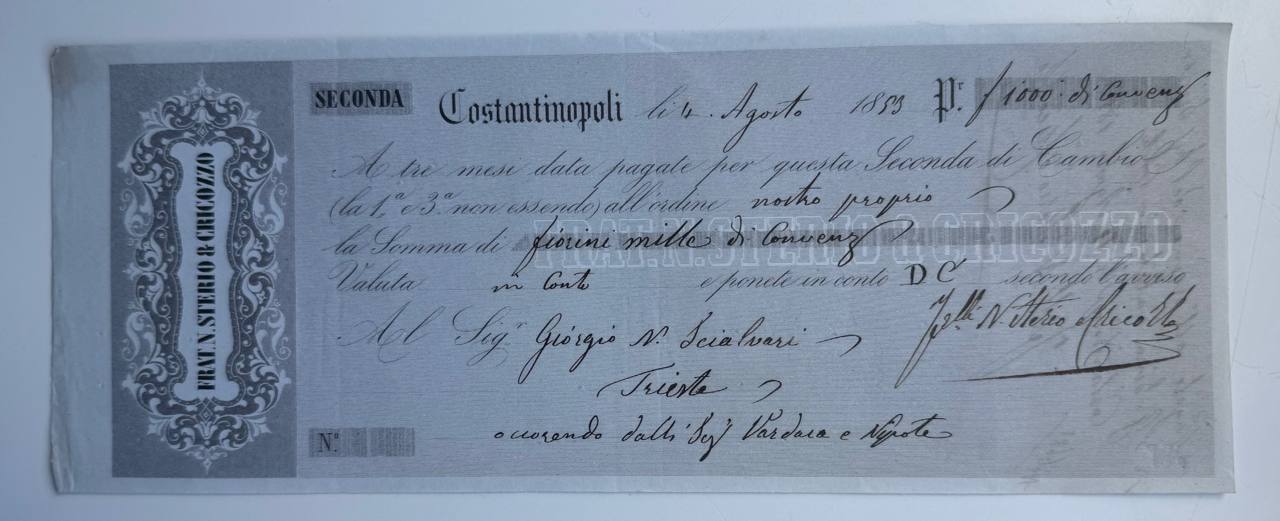 FRAT. N. STERIO & CRICOZZO
SECONDA Costantinopoli li 4. Agosto 1853 Pr. f 1000. di Convenz
A tre mesi data pagate per questa Seconda di Cambio
(la 1.a e 3.a non essendo) all'ordine nostro proprio
la Somma di fiorini mille di Convenz
FRAT. N. STERIO & CRICOZZO
Valuta in Conto e ponete in conto D Cⁱ secondo l'avviso
Flli N. Sterio e Cricozzo
Al Sigr Giorgio N. Scialvari
Trieste
occorendo dalli Sigi Vardaca e Nipote
No.